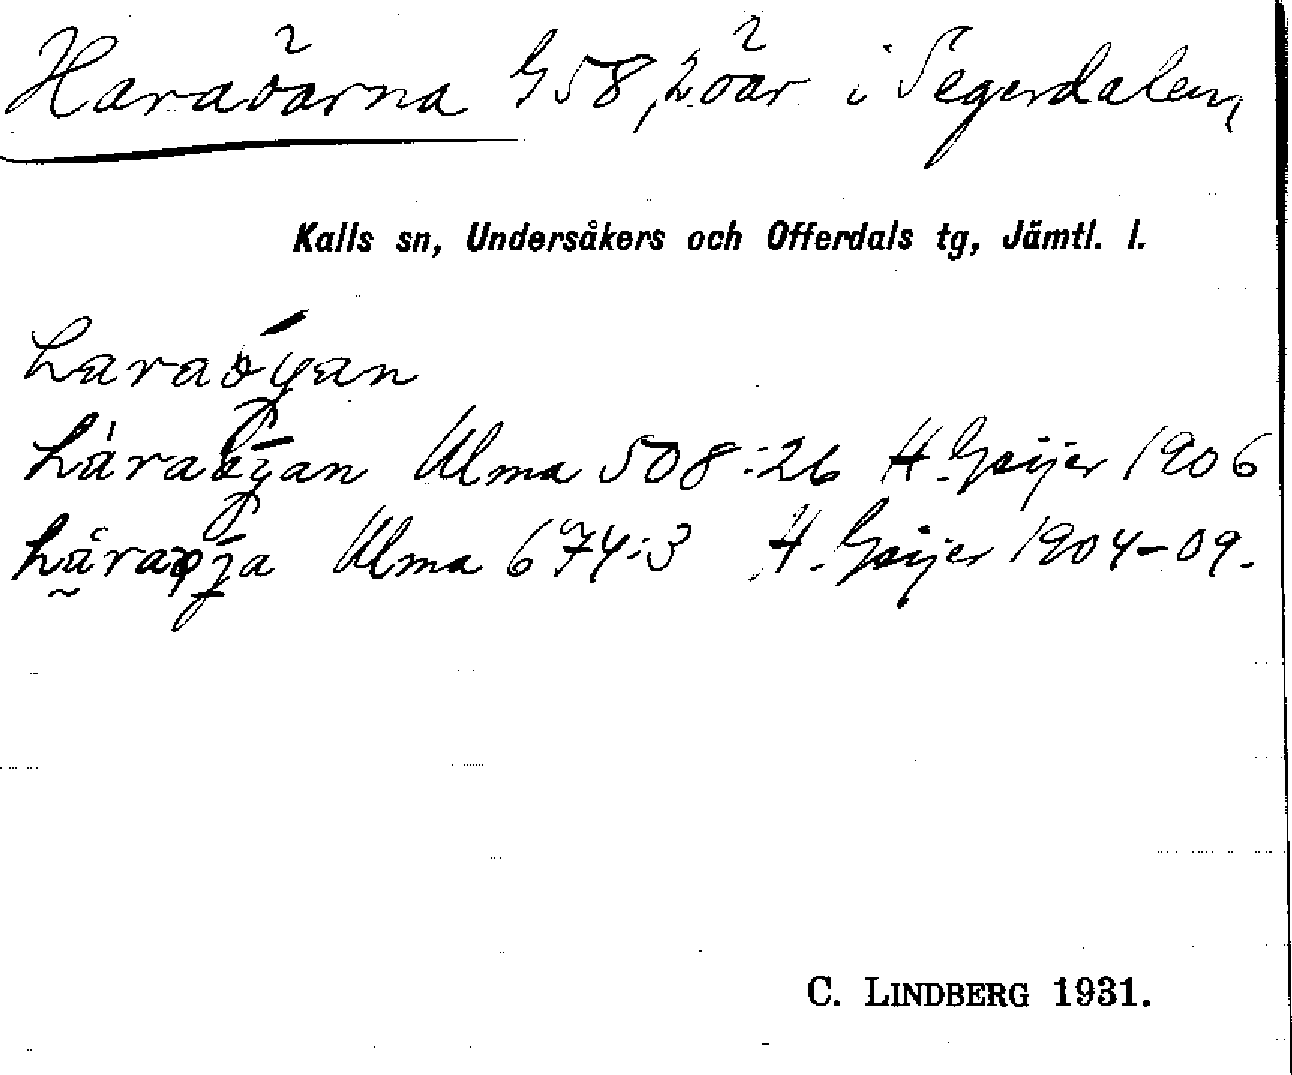 Haraöarna G58, 2 öar i Segerdalen,
Kalls sn, Undersåkers och Offerdals tg, Jämtl. l.
haraöyan
háraöyan Ulma 508:26 H. Geijer 1906
häraøja Ulma 674:3 H. Geijer 1904-09.
C. LINDBERG 1931.